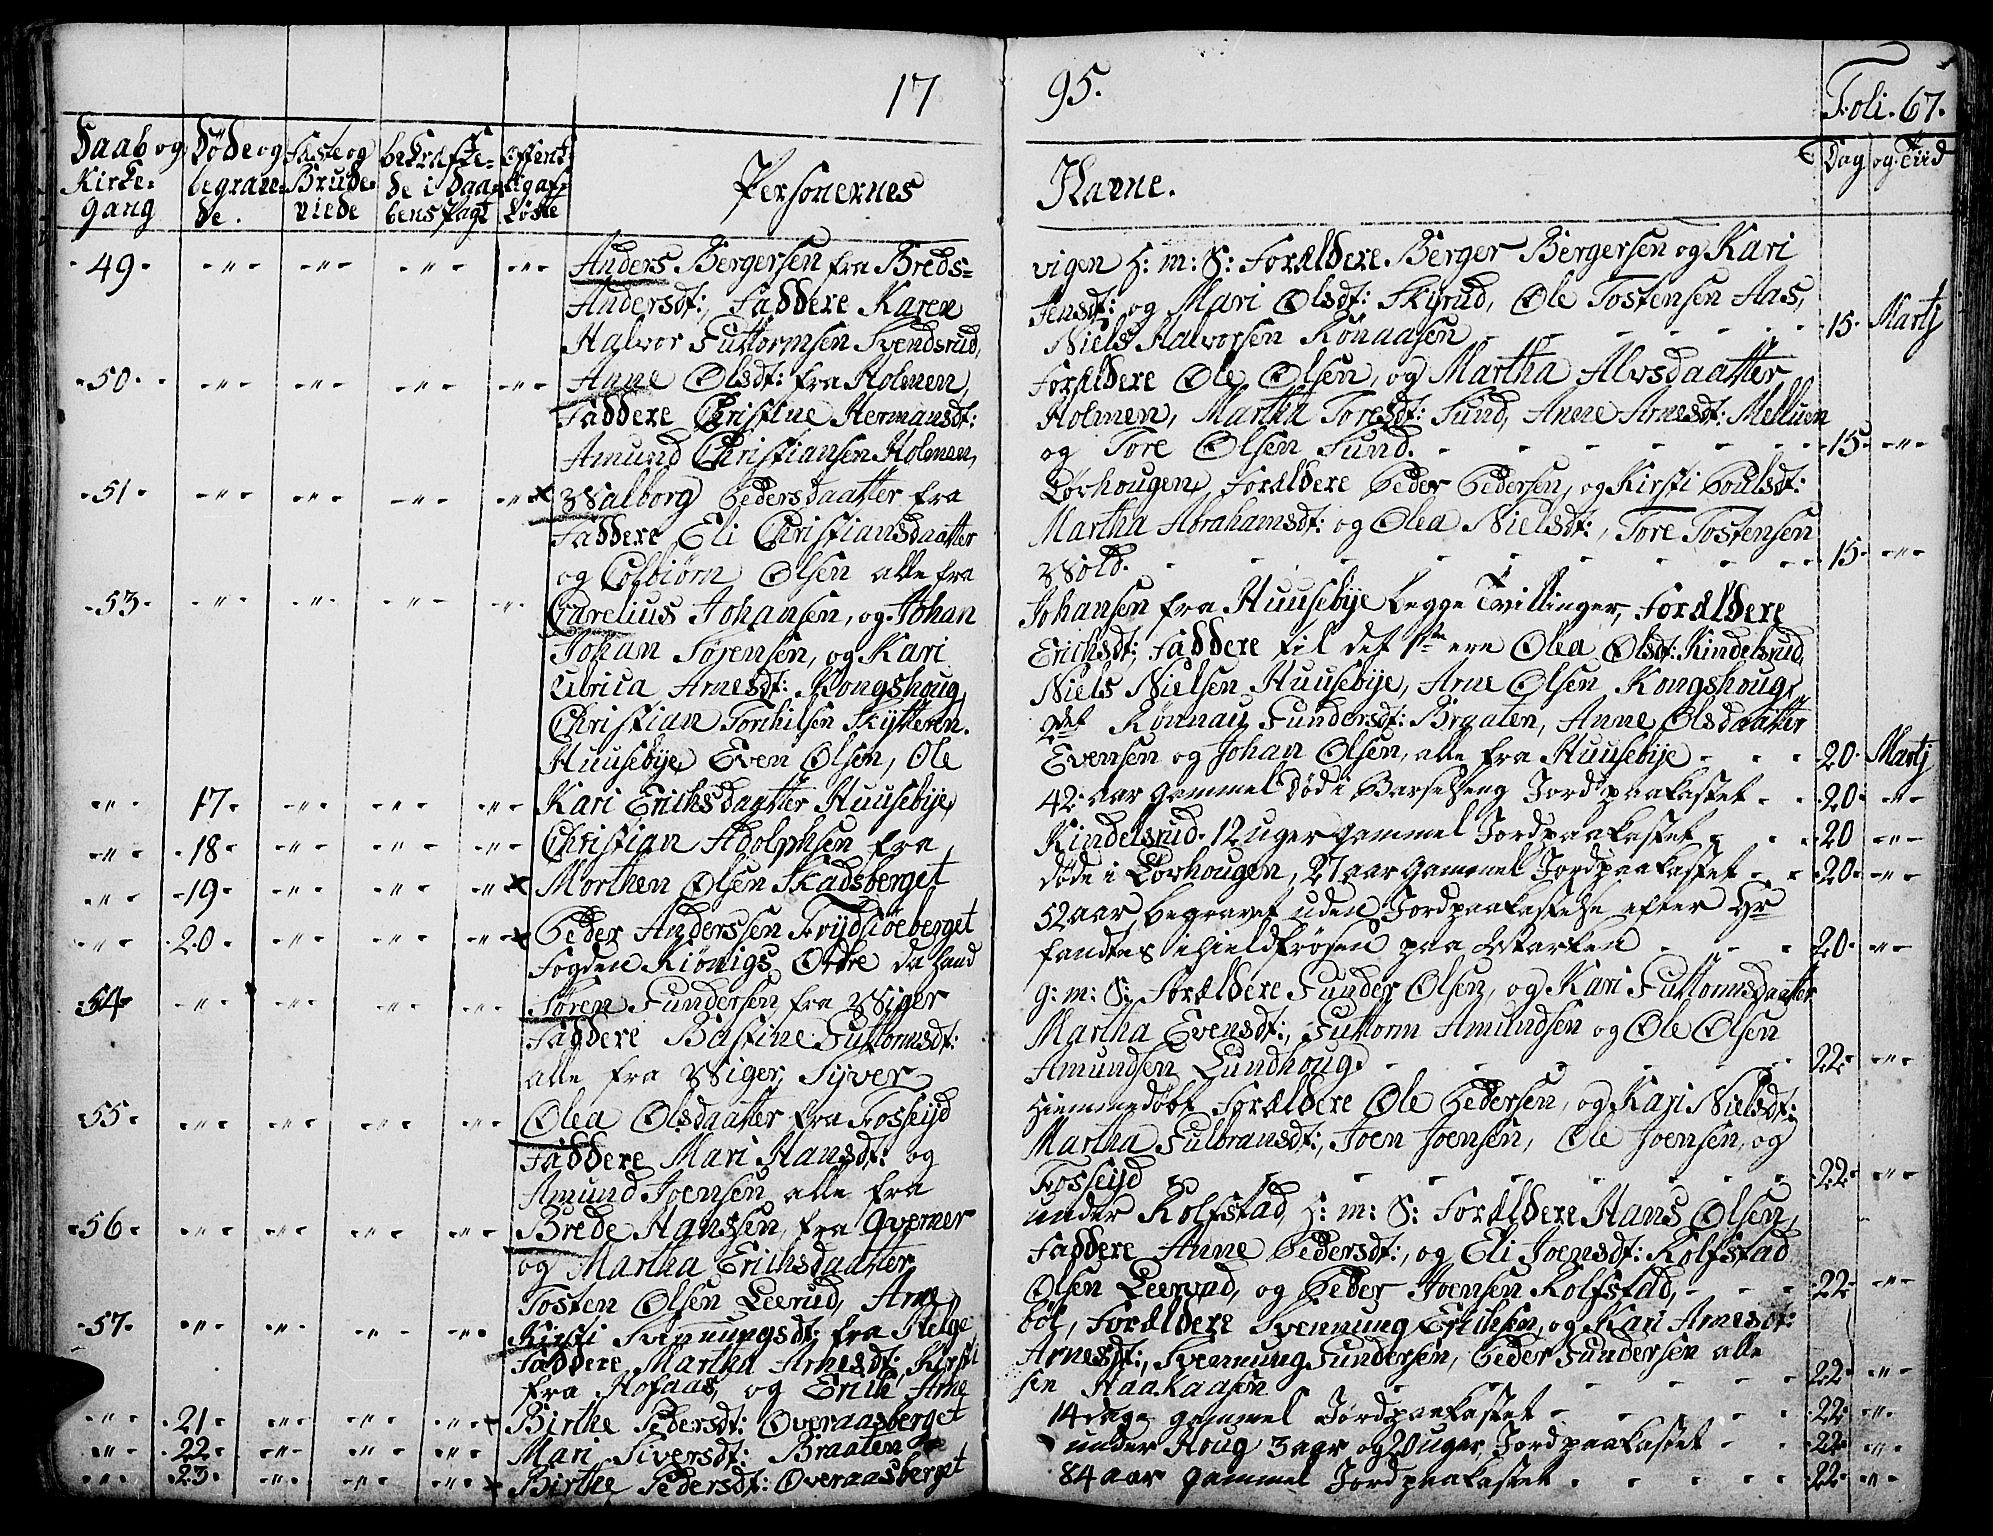 17 95. Foli. 67.
Daab og Kirke-gang
Døde og begrave-de.
Faste og Brude-viede
bekræfte-de i Daa-bens Pagt
Offent-ligaf-løste
Personernes Navne.
Dag og Tiid
49. Anders Bergersen fra Breds= vigen H: m: S: Forældere Berger Bergersen og Kari
Andersdt:, Faddere Karen Jensdt: og Mari Olsdt: Skyrud, Ole Tostensen Aas,
Halvor Guttormsen Svendsrud, Niels Halvorsen Rønaasen 15. Martj
50. Anne Olsdt: fra Holmen, Forældere Ole Olsen, og Martha Alvsdaatter
Faddere Christine Hermansdt: Holmen, Martha Toresdt: Sund, Anne Arnesdt: Melluen
Amund Christiansen Holmen, og Tore Olsen Sund. 15 -"-
51. Walborg Pedersdaatter fra Lørhougen, Forældere Peder Pedersen, og Kirsti Poulsdt:
Faddere Eli Christiansdaatter Martha Abrahamsdt: og Olea Nielsdt:, Tore Tostensen
og Colbiørn Olsen alle fra Wold. 15 -"-
53. Carelius Johansen, og Johan Johansen fra Huusebye begge Tvillinger, Forældere
Johan Sørensen, og Kari Erichsdt:, Faddere til det 1ste ere Olea Olsdt: Kindelsrud,
Ulrica Arnesdt: Kongshoug, Niels Nielsen Huusebye, Arne Olsen Kongshoug,
Christian Torchilsen Skytteren. 2det Rønnau Gundersdt: Braaten, Anne Olsdaatter
Huusebye Even Olsen, Ole Evensen og Johan Olsen, alle fra Huusebye 20. Martj
17. Kari Erichsdaatter Huusebye, 42 aar gammel død i Barselseng Jordpaakastet 20. -"-
18. Christian Adolphsen fra Kindelsrud. 12 uger gammel Jordpaakastet 20 -"-
19. Morthen Olsen Skadsberget døde i Lørhougen, 27 aar gammel Jordpaakastet 20. -"-
20. Peder Anderssen Frydsiøeberget 52 aar, begravet uden Jordpaakastelse efter Hr
Fogden Kiønigs Ordre da hand fandtes ihielfrøsen paa Marken 20. -"-
54 Søren Gundersen fra Wiger g: m: S: Forældere Gunder Olsen, og Kari Guttormsdaatter
Faddere Bastine Guttormsdt: Martha Evensdt:, Guttorm Amundsen og Ole Olsen
alle fra Wiger, Syver Amundsen Lundhoug. 22 -"-
55. Olea Olsdaatter fra Fosseijd Hiemmedøbt Forældere Ole Pedersen, og Kari Nielsdt:
Faddere Mari Hansdt: og Martha Gulbransdt:, Joen Joensen, Ole Joensen, og
Amund Joensen alle fra Fosseijd 22 -"-
56. Brede Hanssen, fra Qverner under Rolfstad, H: m: S: Forældere Hans Olsen,
og Martha Erichsdaatter Faddere Anne Pedersdt:, og Eli Joensdt: Rolfstad
Tosten Olsen Leerud, Arne Olsen Leerud, og Peder Joensen Rolfstad, 22. -"-
57. Kirsti Svennungsdt: fra Helge bøl, Forældere Svennung Erichsen, og Kari Arnesdt:
Faddere Martha Arnesdt:, Kirsti Arnesdt:, Svennung Gundersen, Peder Gundersen alle
fra Hofaas, og Erich Arne sen Haakaasen 22 -"-
21. Birthe Pedersdt: Overaasberget 14 dage gammel Jordpaakastet 22. -"-
22. Mari Siversdt: Braaten under Houg 3 aar og 20 uger, Jordpaakastet 22 -"-
23. Birthe Pedersdt: Overaasberget 84 aar gammel Jordpaakastet 22. -"-